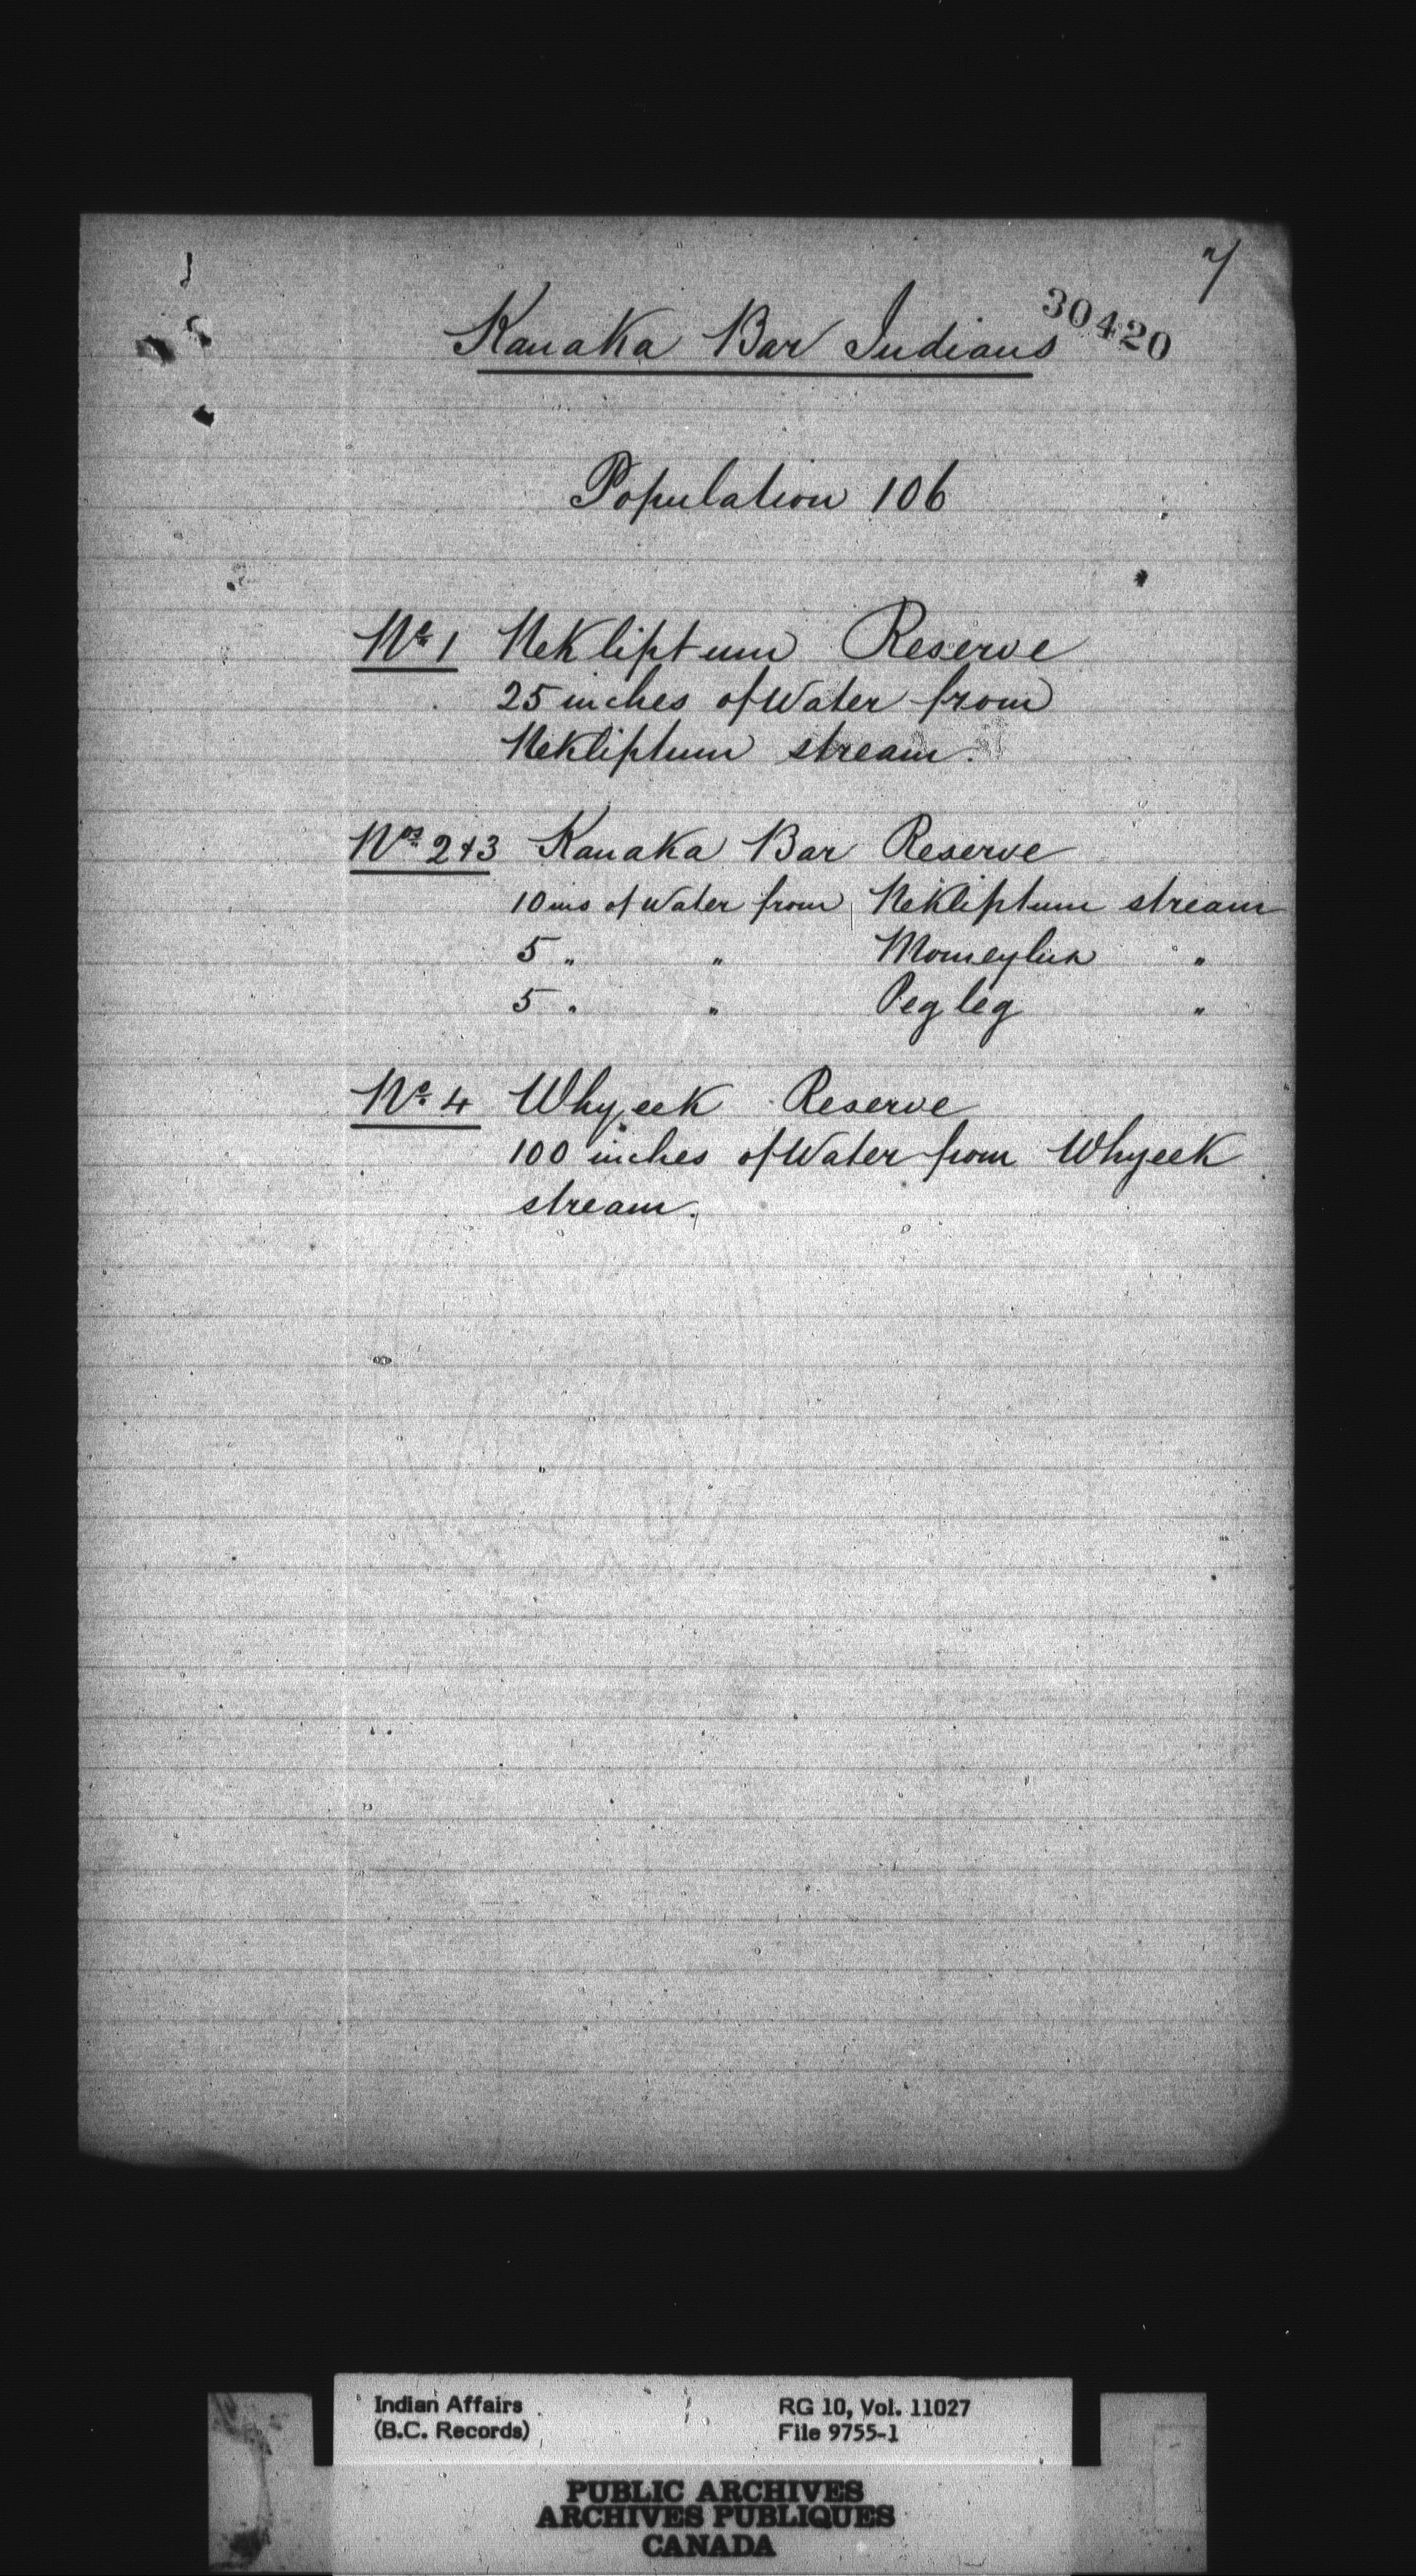 7
30420
Kanaka Bar Indians
Population 106
No. 1 Nekliptum Reserve
25 inches of Water from
Nekliptum stream.
Nos. 2 & 3 Kanaka Bar Reserve
10 ins of Water from Nekliptum stream
5 " " "
5 " " Peg leg "
No. 4 Whyeek Reserve
100 inches of Water from Whyeek
stream.
Indian Affairs
(B.C. Records)
RG 10, Vol. 11027
File 9755-1
PUBLIC ARCHIVES
ARCHIVES PUBLIQUES
CANADA